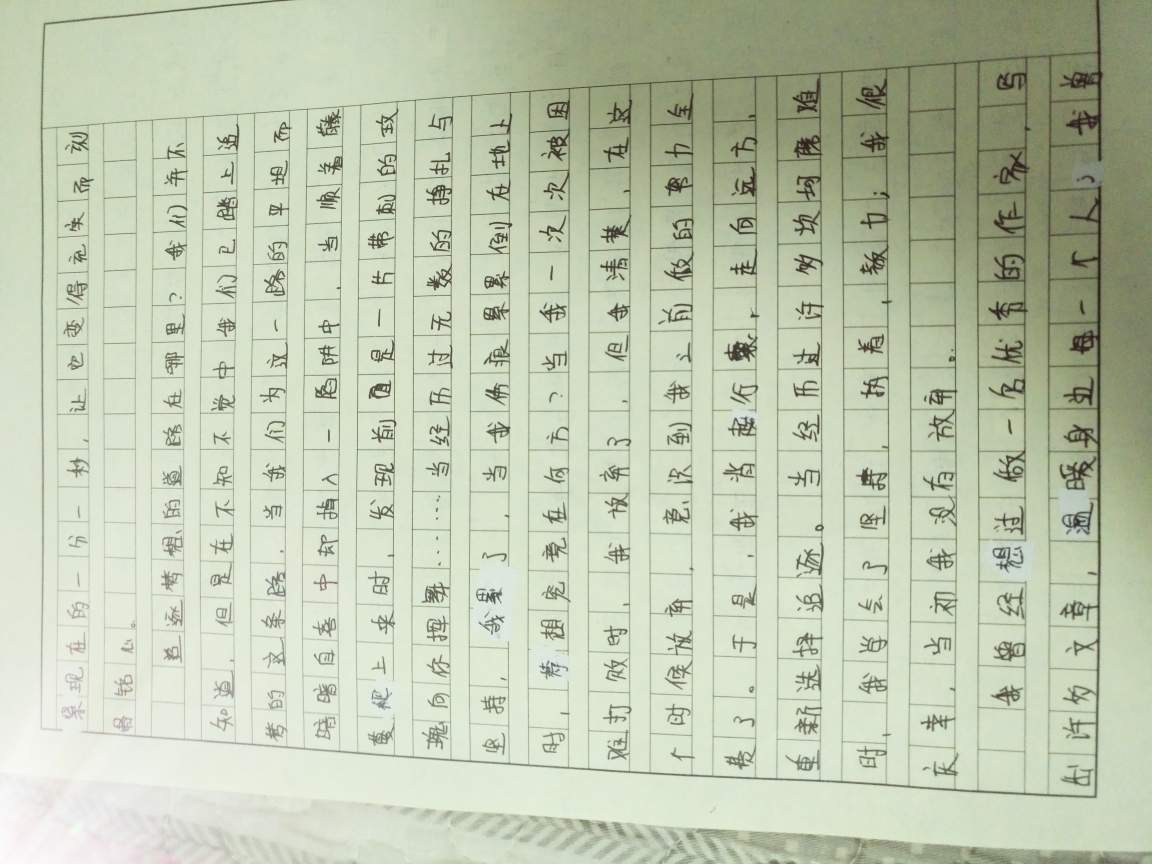 累现在的一分一秒，让它变得充实而刻
骨铭心。
追逐梦想的道路在哪里？我们并不
知道，但是在不知不觉中我们已踏上追
梦的这条路，当我们为这一路的平坦而
暗暗自喜中却掉入一陷阱中，当顺着藤
蔓爬上来时，发现前面是一片带刺的玫
瑰向你挥舞……当经历过无数的挣扎与
坚持，我累了，当我伤痕累累倒在地上
时，梦想究竟在何方？当我一次次被困
难打败时，我放弃了，但我清楚，在这
个时候放弃，意识到我之前做的努力全
费了。于是，我背起行囊，走向远方，
重新选择追逐。当经历过许多坎坷磨难
时，我学会了坚持，执着，毅力；我很
庆幸，当初我没有放弃。
我曾经想过做一名优秀的作家，写
出许多文章，温暖身边每一个人；我曾